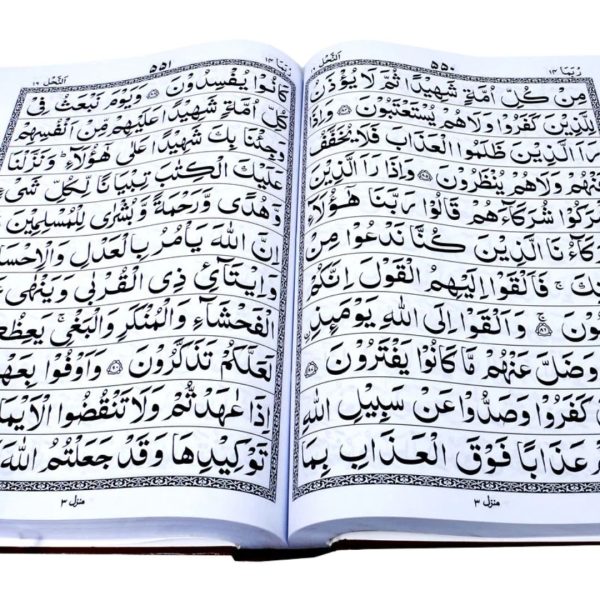 رُبَمَا ١٤ ٥٥٠ اَلنَّحْل ١٦
مِنْ كُلِّ اُمَّةٍ شَهِيْدًا ثُمَّ لَا يُؤْذَنُ
لِلَّذِيْنَ كَفَرُوْا وَلَا هُمْ يُسْتَعْتَبُوْنَ وَاِذَا
رَاَ الَّذِيْنَ ظَلَمُوا الْعَذَابَ فَلَا يُخَفَّفُ
عَنْهُمْ وَلَا هُمْ يُنْظَرُوْنَ ۝ وَاِذَا رَاَ الَّذِيْنَ
اَشْرَكُوْا شُرَكَآءَهُمْ قَالُوْا رَبَّنَا هٰٓؤُلَآءِ
شُرَكَآؤُنَا الَّذِيْنَ كُنَّا نَدْعُوْا مِنْ
دُوْنِكَ ۚ فَاَلْقَوْا اِلَيْهِمُ الْقَوْلَ اِنَّكُمْ
لَكٰذِبُوْنَ ۝ وَاَلْقَوْا اِلَى اللّٰهِ يَوْمَئِذِ
وَضَلَّ عَنْهُمْ مَّا كَانُوْا يَفْتَرُوْنَ ۝
كَفَرُوْا وَصَدُّوْا عَنْ سَبِيْلِ اللّٰهِ
عَذَابًا فَوْقَ الْعَذَابِ بِمَا
منزل ٣
رُبَمَا ١٤ ٥٥١ اَلنَّحْل ١٦
كَانُوْا يُفْسِدُوْنَ ۝ وَيَوْمَ نَبْعَثُ فِيْ
كُلِّ اُمَّةٍ شَهِيْدًا عَلَيْهِمْ مِّنْ اَنْفُسِهِمْ
وَجِئْنَا بِكَ شَهِيْدًا عَلٰى هٰٓؤُلَآءِ ؕ وَنَزَّلْنَا
عَلَيْكَ الْكِتٰبَ تِبْيَانًا لِّكُلِّ شَيْءٍ
وَّهُدًى وَّرَحْمَةً وَّبُشْرٰى لِلْمُسْلِمِيْنَ
اِنَّ اللّٰهَ يَاْمُرُ بِالْعَدْلِ وَالْاِحْسَانِ
وَاِيْتَآئِ ذِي الْقُرْبٰى وَيَنْهٰى
الْفَحْشَآءِ وَالْمُنْكَرِ وَالْبَغْيِ ۚ يَعِظُكُمْ
لَعَلَّكُمْ تَذَكَّرُوْنَ ۝ وَاَوْفُوْا بِعَهْدِ
اِذَا عٰهَدْتُّمْ وَلَا تَنْقُضُوا الْاَيْمَانَ
تَوْكِيْدِهَا وَقَدْ جَعَلْتُمُ اللّٰهَ
منزل ٣